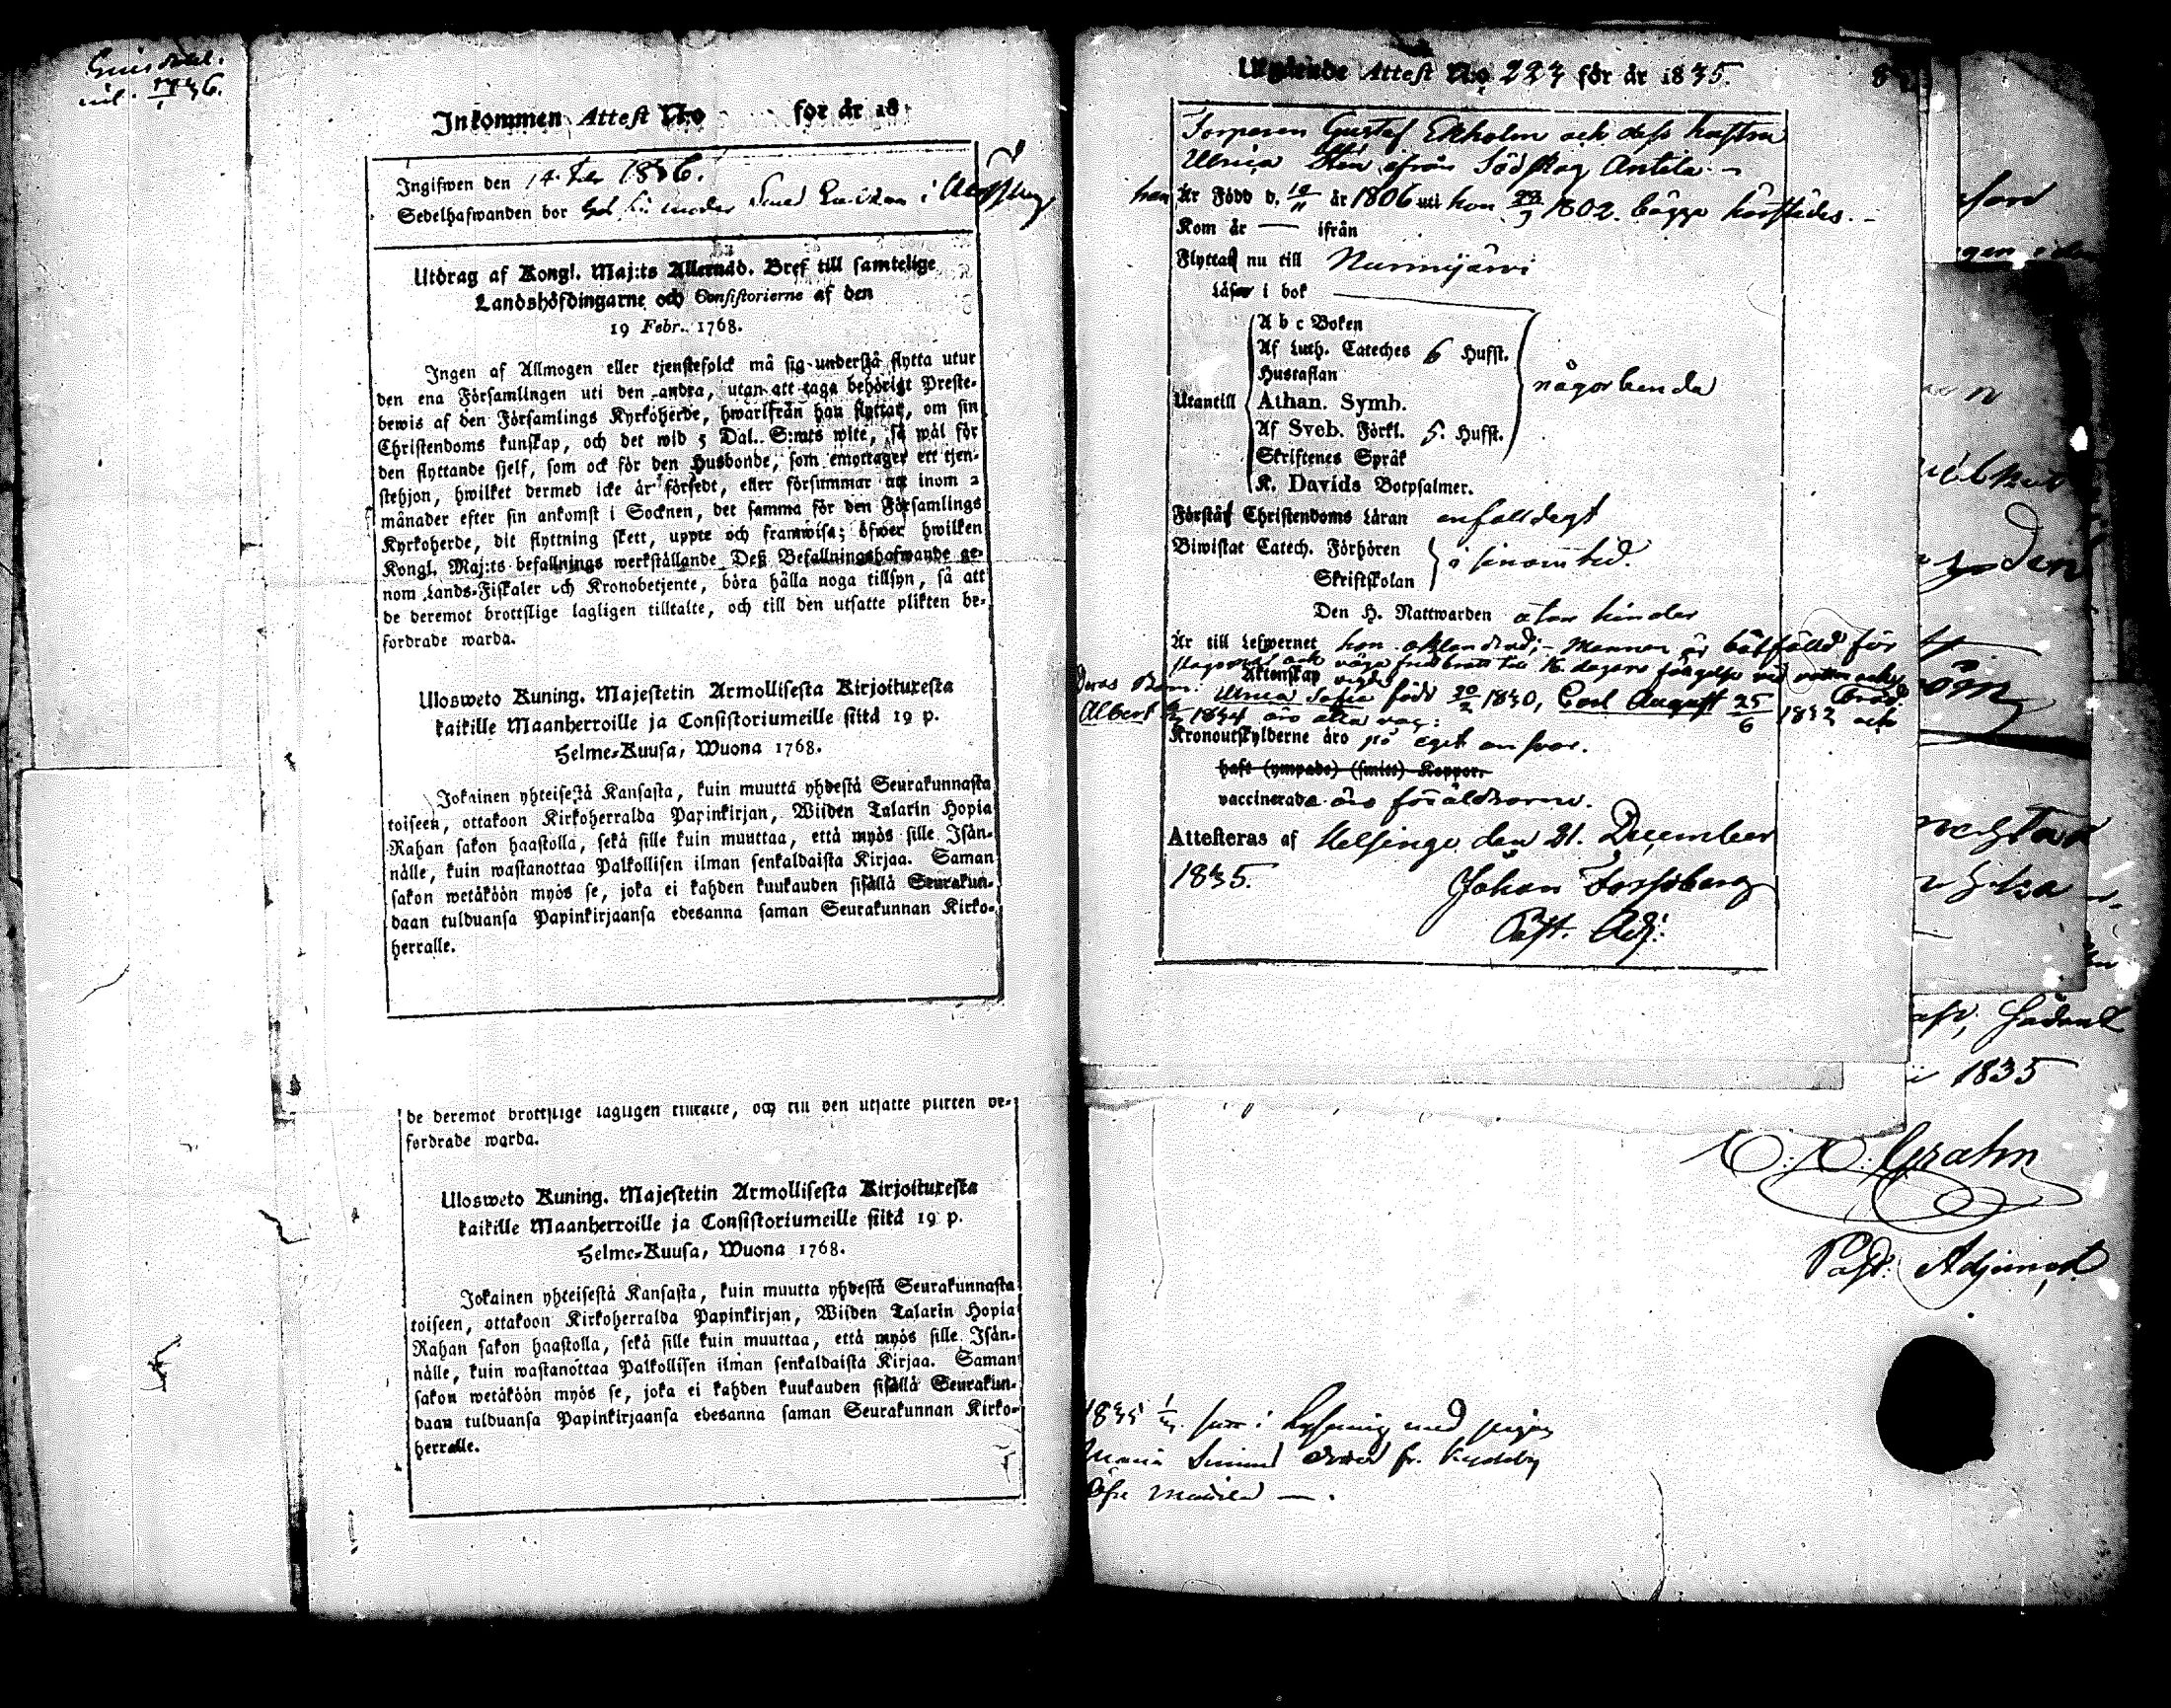 Inkommen Attest N:o för år 18
Ingifwen den 14 Feb 1836.
Sedelhafwanden bor hos sin moder i
Utdrag af Kongl. Maj:ts Allernåd. Bref till samtelige
Landshöfdingarne och Consistorierne af den
19 Febr. 1768.
Ingen af Allmogen eller tjenstefolck må sig understå flytta utur
den ena Församlingen uti den andra, utan att taga behörigt Preste-
bewis af den Församlings Kyrkoherde, hwarifrån han flyttar, om sin
Christendoms kunskap, och det wid 5 Dal. S:mts wite, så wäl för
den flyttande sjelf, som ock för den Husbonde, som emottager ett tjen-
stehjon, hwilket dermed icke är försedt, eller försummar att inom 2
månader efter sin ankomst i Socknen, det samma för den Församlings
Kyrkoherde, dit flyttning skett, uppte och framwisa; öfwer hwilken
Kongl. Maj:ts befallnings werkställande Deß Befallningshafwande ge-
nom Lands-Fiskaler och Kronobetjente, böra hålla noga tillsyn, så att
de deremot brottslige lagligen tilltalte, och till den utsatte plikten be-
fordrade warda.
Ulosweto Kuning. Majestetin Armollisesta Kirjoituxesta
kaikille Maanherroille ja Consistoriumeille siitä 19 p.
Helme-Kuusa, Wuona 1768.
Jokainen yhteisestä Kansasta, kuin muutta yhdestä Seurakunnasta
toiseen, ottakoon Kirkoherralda Papinkirjan, Wiiden Talarin Hopia
Rahan sakon haastolla, sekä sille kuin muuttaa, että myös sille Isän-
nälle, kuin wastanottaa Palkollisen ilman senkaldaista Kirjaa. Saman
sakon wetäköön myös se, joka ei kahden kuukauden sisällä Seurakun-
daan tulduansa Papinkirjaansa edesanna saman Seurakunnan Kirko-
herralle.
de deremot brottslige lagligen tilltalte, och till den utsatte plikten be-
fordrade warda.
Ulosweto Kuning. Majestetin Armollisesta Kirjoituxesta
kaikille Maanherroille ja Consistoriumeille siitä 19 p.
Helme-Kuusa, Wuona 1768.
Jokainen yhteisestä Kansasta, kuin muutta yhdestä Seurakunnasta
toiseen, ottakoon Kirkoherralda Papinkirjan, Wiiden Talarin Hopia
Rahan sakon haastolla, sekä sille kuin muuttaa, että myös sille Isän-
nälle, kuin wastanottaa Palkollisen ilman senkaldaista Kirjaa. Saman
sakon wetäköön myös se, joka ei kahden kuukauden sisällä Seurakun-
daan tulduansa Papinkirjaansa edesanna saman Seurakunnan Kirko-
herralle.
Utgående Attest N:o 223 för år 1835.
Torparen Gustaf Ekholm och dess hustru
Ulrica Stén ifrån Södskog Antila
han Är Född d. 10/11 år 1806 uti hon 1802. bägge härstädes.
Kom år — ifrån
Flyttat nu till Nurmijärvi
Läser i bok
A b c Boken
Af Luth. Cateches 6 Hufst.
Hustaflan
Utantill Athan. Symb. någorlunda
Af Sveb. Förkl. 5. Hufst.
Skriftenes Språk
K. Davids Botpsalmer.
Förstår Christendoms Läran enfaldigt
Biwistat Catech. Förhören i sinom tid.
Skriftskolan
Den H. Nattwarden utan hinder
Är till Lefwernet hon oklandrad; Mannen är bötfälld för
och till 16 dagars fängelse vid vatten och
Äktenskap bröd.
Deras Barn: Ulrica Sofia född 20/2 1830, Carl August 25/6 1832 och
Albert 1834 äro alla vac:
Kronoutskylderne äro på eget ansvar.
haft (ympade) (smitt) Koppor.
vaccinerade äro föräldrarne.
Attesteras af Helsinge den 21. December
1835. Johan Forssberg
Past. Adj.
1835
Grahn
Past. Adjunct.
1835 i Lysning med pigan
Maria